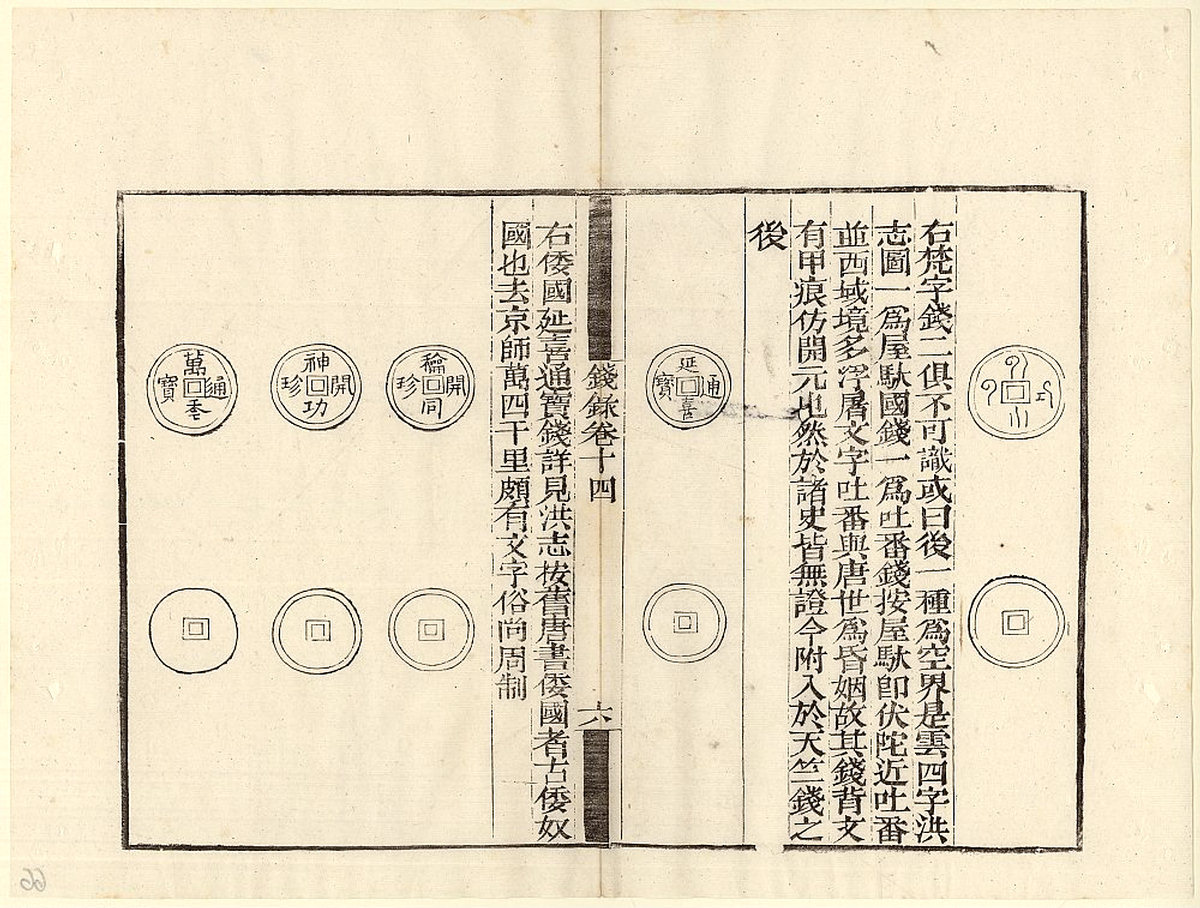 右梵字錢二俱不可識或曰後一種爲空界是雲四字洪
志圖一爲屋馱國錢一爲吐番錢按屋馱卽伏陀近吐番
並西域境多浮屠文字吐番與唐世爲昏姻故其錢背文
有甲痕仿開元也然於諸史皆無證今附入於天竺錢之
後
延喜通寶
錢錄卷十四
六
右倭國延喜通寶錢詳見洪志按舊唐書倭國者古倭奴
國也去京師萬四千里頗有文字俗尚周制
開同珍
神功開珍
萬年通寶
66